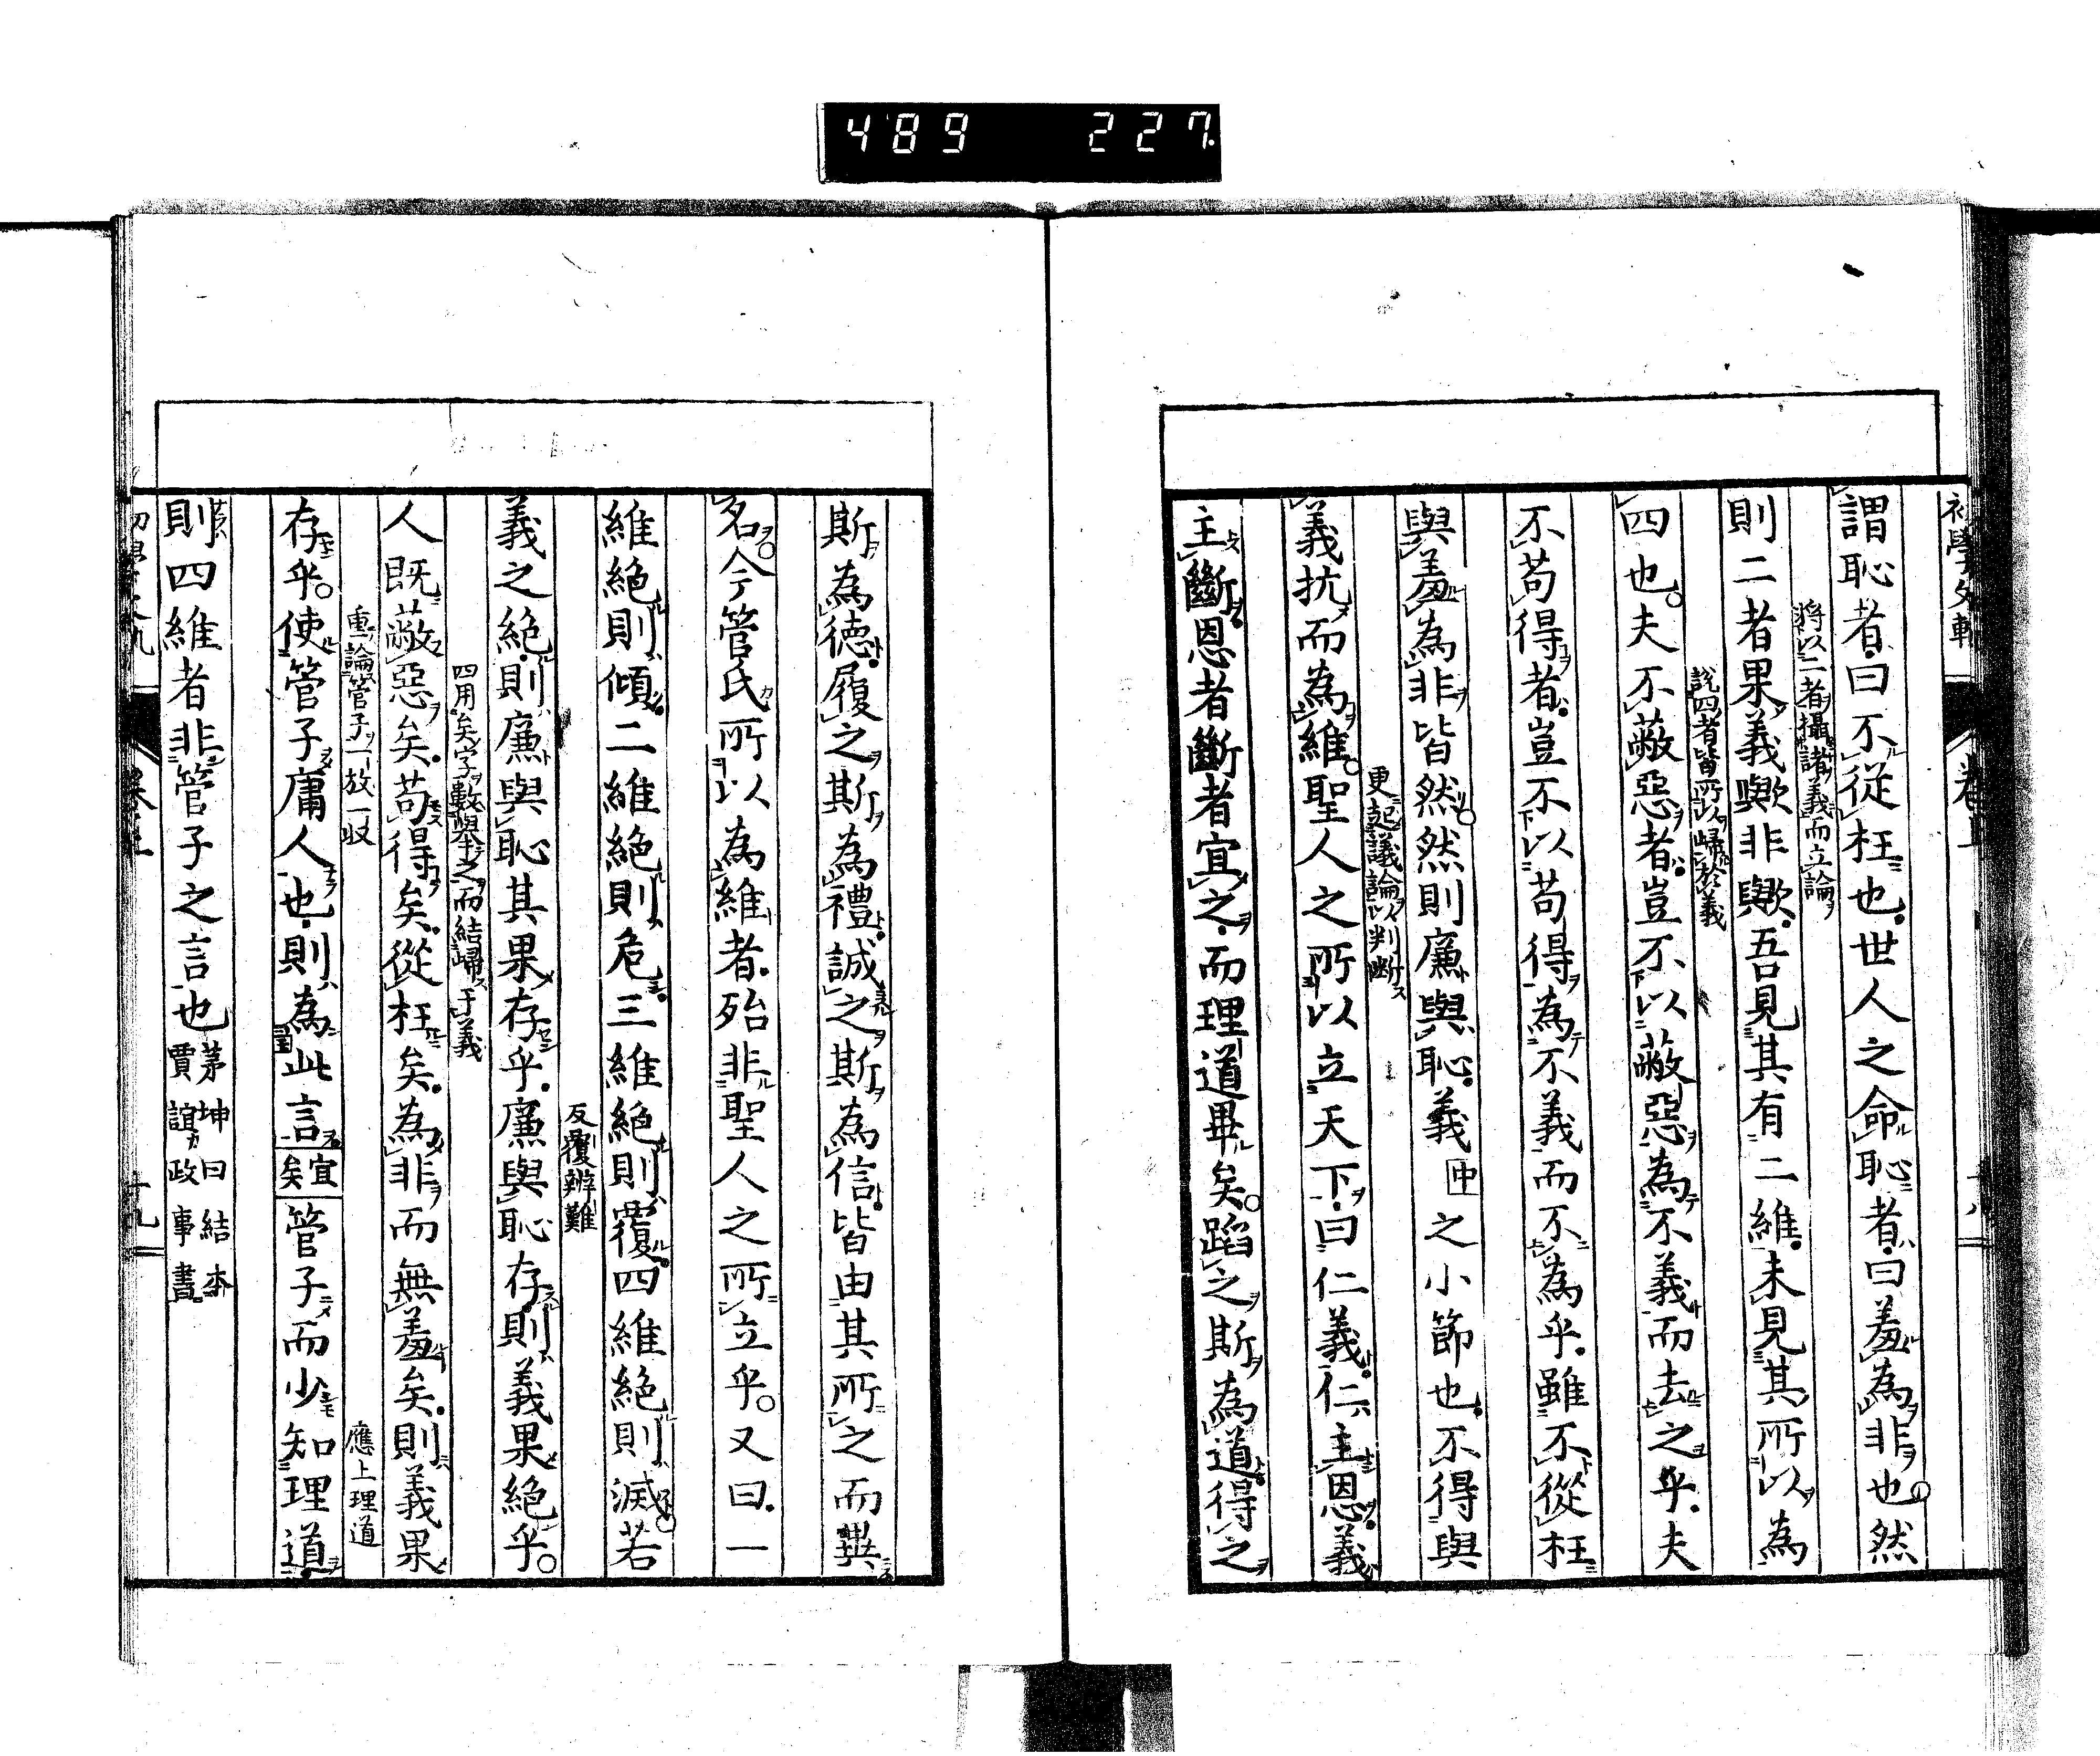 489 227
謂恥者曰不從枉也世人之命恥者曰羞為非也然
將以二者攝諸義而立論
則二者果義歟非歟吾見其有二維未見其所以為
說四者皆所以歸於義
四也夫不蔽惡者豈不以蔽惡為不義而去之乎夫
不苟得者豈不以苟得為不義而不為乎雖不從枉
與羞為非皆然然則廉與恥義中之小節也不得與
更起議論以判斷
義抗而為維聖人之所以立天下曰仁義仁主恩義
主斷恩者斷者宜之而理道畢矣蹈之斯為道得之
斯為德履之斯為禮誠之斯為信皆由其所之而異
名今管氏所以為維者殆非聖人之所立乎又曰一
維絕則傾二維絕則危三維絕則覆四維絕則滅若
反覆辨難
義之絕則廉與恥其果存乎廉與恥存則義果絕乎
四用矣字數舉之而結歸于義
人既蔽惡矣苟得矣從枉矣為非而無羞矣則義果
重論管子一放一收
應上理道
存乎使管子庸人也則為此言宜矣管子而少知理道
則四維者非管子之言也茅坤曰結本賈誼政事書
卷三
十九